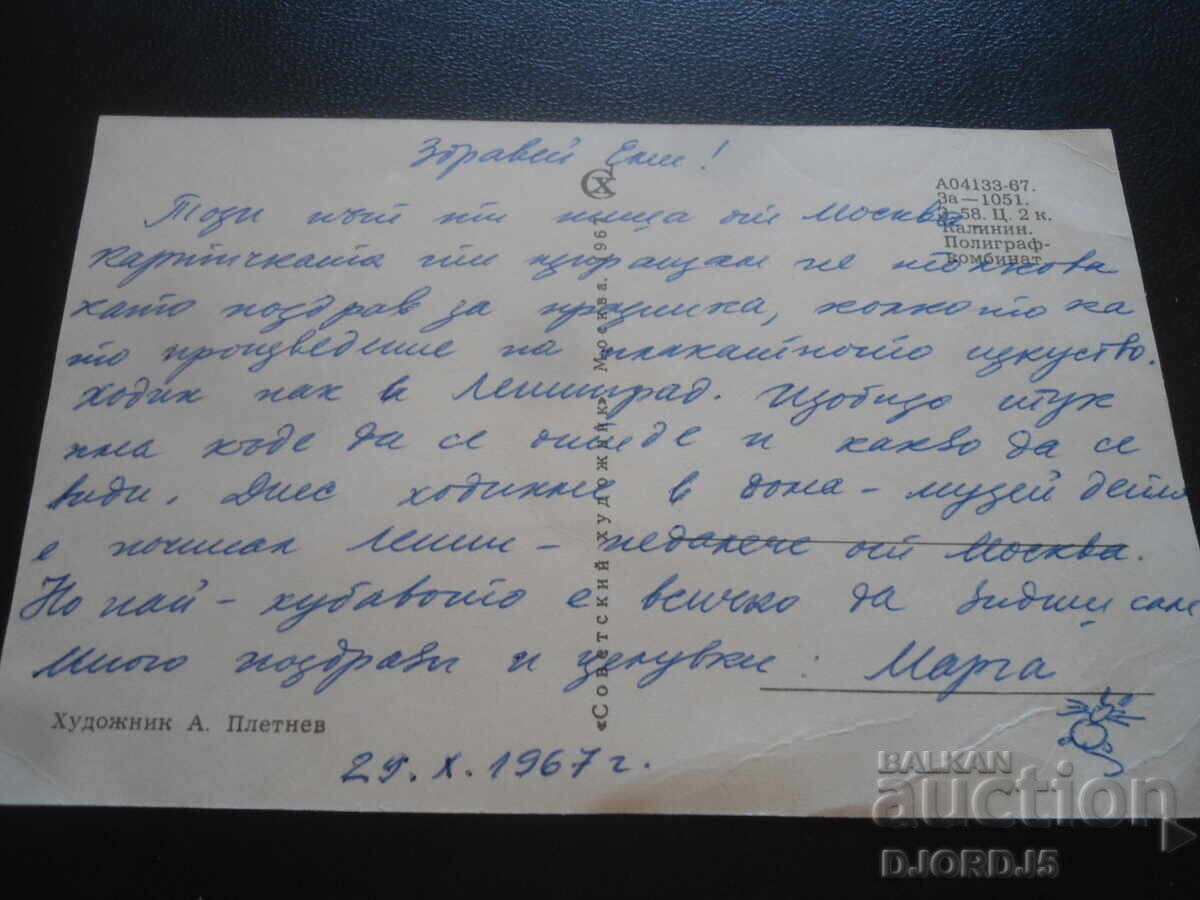 Здравей Ели!
Този път ти пиша от Москва.
Картичката ти изпращам не толкова
като поздрав за празника, колкото ка
то произведение на плакатното изкуство.
Ходих пак в Ленинград. Изобщо тук
има къде да се отиде и какво да се
види. Днес ходихме в дома-музей дето
е починал Ленин - недалече от Москва.
Но най-хубавото е всичко да видиш сам
Много поздрави и целувки: Марга
29. X. 1967 г.
А04133-67.
За—1051.
З-58. Ц. 2 к.
Калинин.
Полиграф-
комбинат
«Советский художник» Москва. 1967
Художник А. Плетнев
BALKAN
auction
DJORDJ5